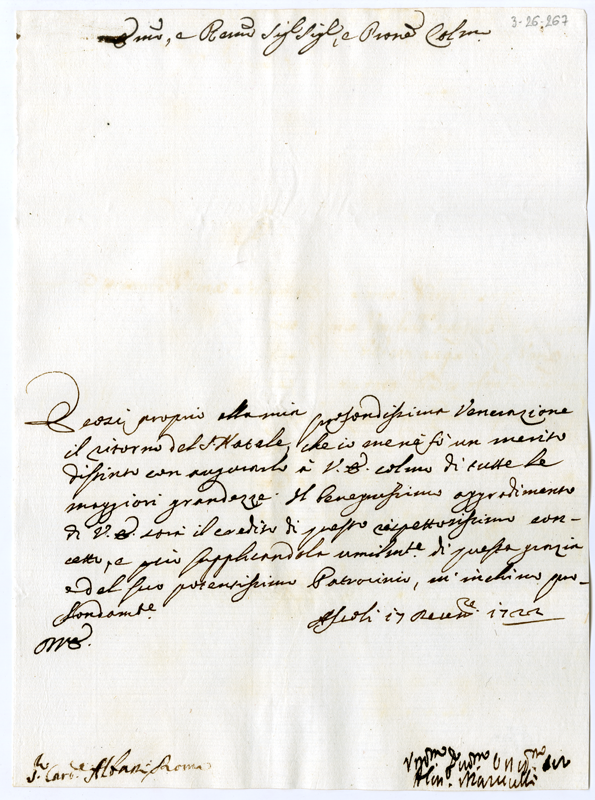 3-26-267
Emo, e Remo Sigr Sigr, e Prone Colmo
E cosi proprio alla mia profondissima Venerazione
il ritorno del S. Natale, che io me ne fò un merito
distinto con augurarlo à V. E. colmo di tutte le
maggiori grandezze. Il benignissimo aggradimento
di V. E. sarà il credito di questo rispettosissimo con-
cetto, e più supplicandola umilmte di questa grazia
e del suo potentissimo Patrocinio, m'inchino pro-
fondamte
Ascoli 17 Decembre 1722
V. E.
Sr. Carde Albani Roma
Umo Devmo Oblmo Ser
Marucelli